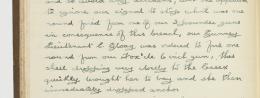 and to avoid any
to ignore our signal to stop which was one
round fired from one of our 3 pounder guns
in consequence of this breach, our Gunnery
Lieutenant C was ordered to fire one
round from our 4 inch gun, this
shell dropping very closely to the
quickly brought her to and she then
immediately dropped anchor